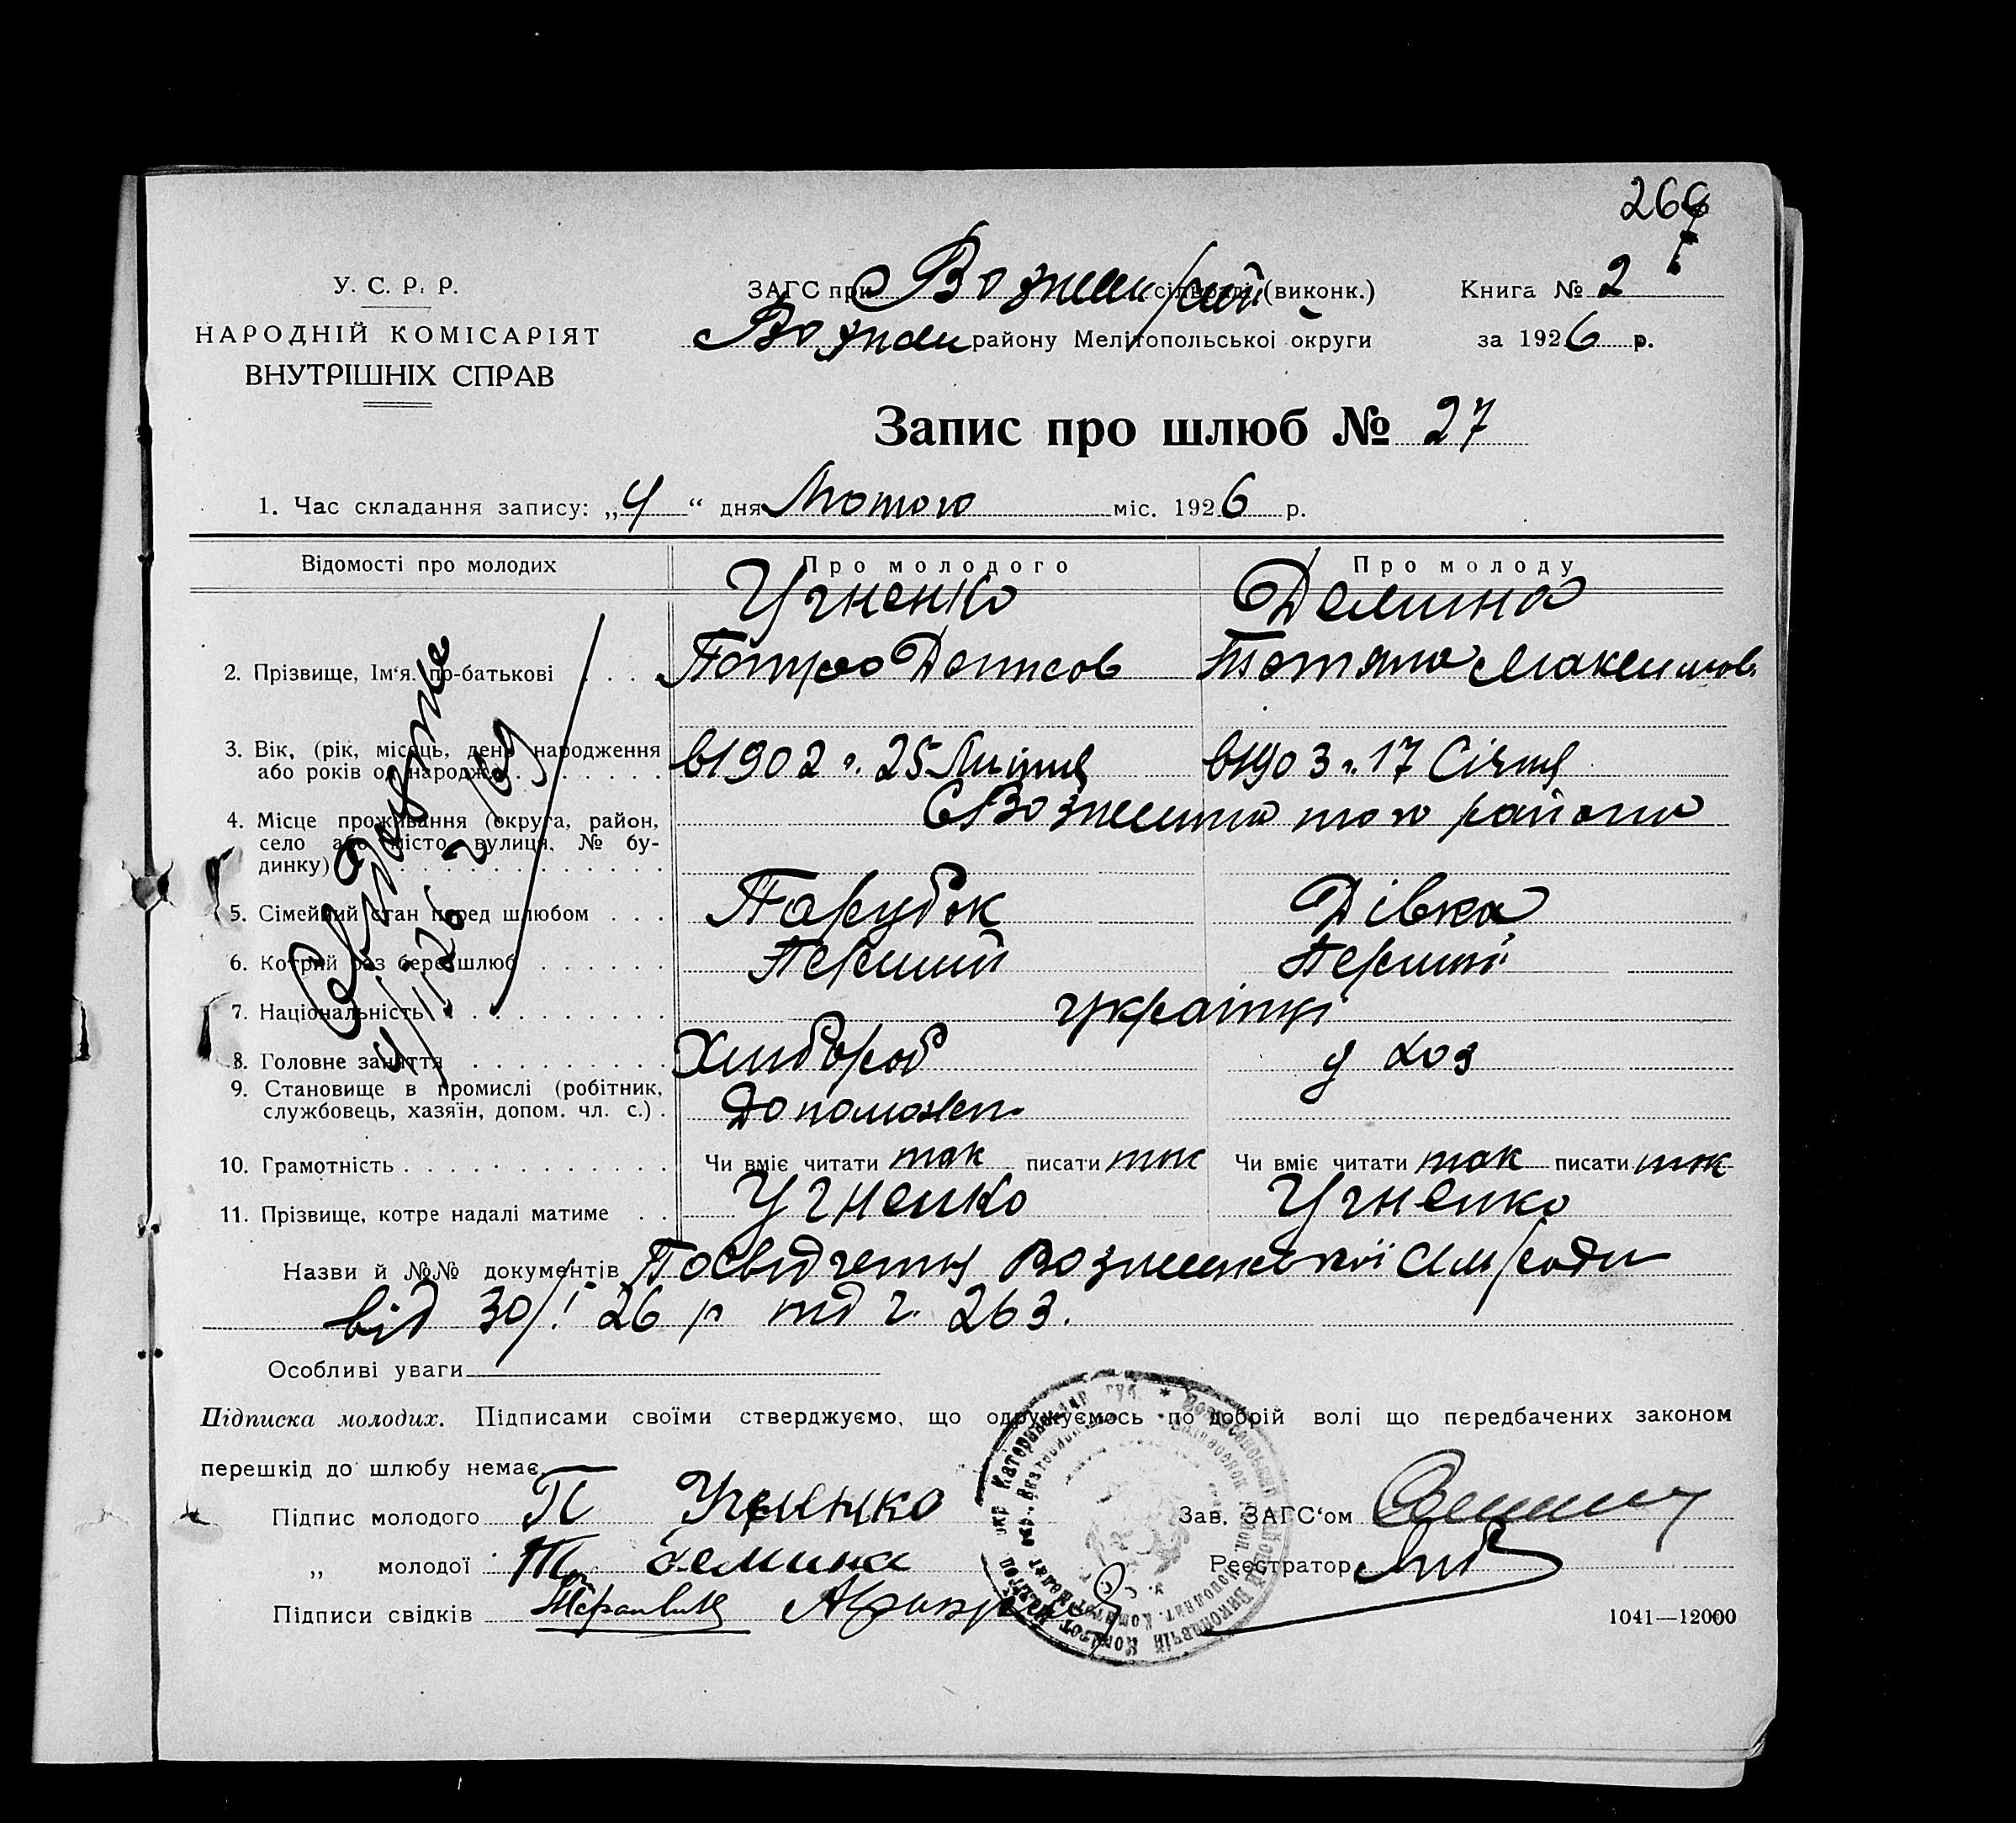 266
У. С. Р. Р.
НАРОДНІЙ КОМІСАРІЯТ
ВНУТРІШНІХ СПРАВ
ЗАГС при Вознен/рай сільраді (виконк.)
Возне районy Мелітопольської округи
Книга № 2
за 1926 р.
Запис про шлюб № 27
1. Час складання запису: „4“ дня Лютого міс. 1926 р.
Відомості про молодих
Про молодого
Про молоду
Угненко
Демина
2. Прізвище, Ім'я, по-батькові . . . Петро Денисов Тетяна Максимов.
3. Вік, (рік, місяць, день народження
або років од народж.) . . . . . . . в1902 г. 25 Липня в1903 г. 17 Січня
4. Місце проживання (округа, район,
село або місто, вулиця, № бу-
динку) . . . . . . . . . . . .
С Вознесенка того району
5. Сімейний стан перед шлюбом . . . Парубок Дівка
6. Котрий раз бере шлюб . . . . . . Перший Перший
7. Національність . . . . . . . . . українці
8. Головне заняття . . . . . . . . . Хлибороб д хоз
9. Становище в промислі (робітник,
службовець, хазяїн, допом. чл. с.) . Допоможп.
10. Грамотність . . . . . . . . . . . . Чи вміє читати так писати так Чи вміє читати так писати так
11. Прізвище, котре надалі матиме . . Угненко Угненко
Назви й №№ документів Посвідчення Вознесенської сільради
від 30/I 26 р під ч. 263.
Особливі уваги
Підписка молодих. Підписами своїми стверджуємо, що одружуємось по добрій волі що передбачених законом
перешкід до шлюбу немає.
Підпис молодого П Угненко
„ молодої Т. Демина
Підписи свідків
Зав. ЗАГС'ом
Реєстратор
1041—12000